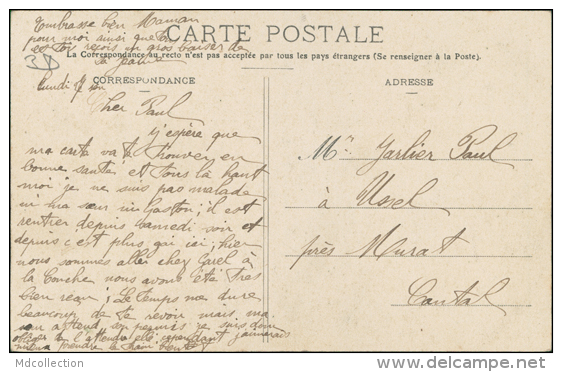 Embrasse bien Maman
pour moi ainsi que
et toi reçois un gros baiser de
ta Jeanne
CARTE POSTALE
La Correspondance au recto n'est pas acceptée par tous les pays étrangers (Se renseigner à la Poste).
CORRESPONDANCE
ADRESSE
Lundi
Cher Paul
j'espère que
ma carte va te trouver en
bonne santé et tous là haut
moi je ne suis pas malade
ni ma sœur ni Gaston; il est
rentrer depuis samedi soir et
depuis c'est plus gai ici; hier
nous sommes aller chez
la nous avons été très
bien reçu; Le temps me dure
beaucoup de te revoir mais, ma
sœur attend son permis je suis donc
obliger de l'attendre elle cependant
mieux prendre le train bientôt
Mr Jarlier Paul
à Ussel
près Murat
Cantal
Mdcollection
www.delcampe.net